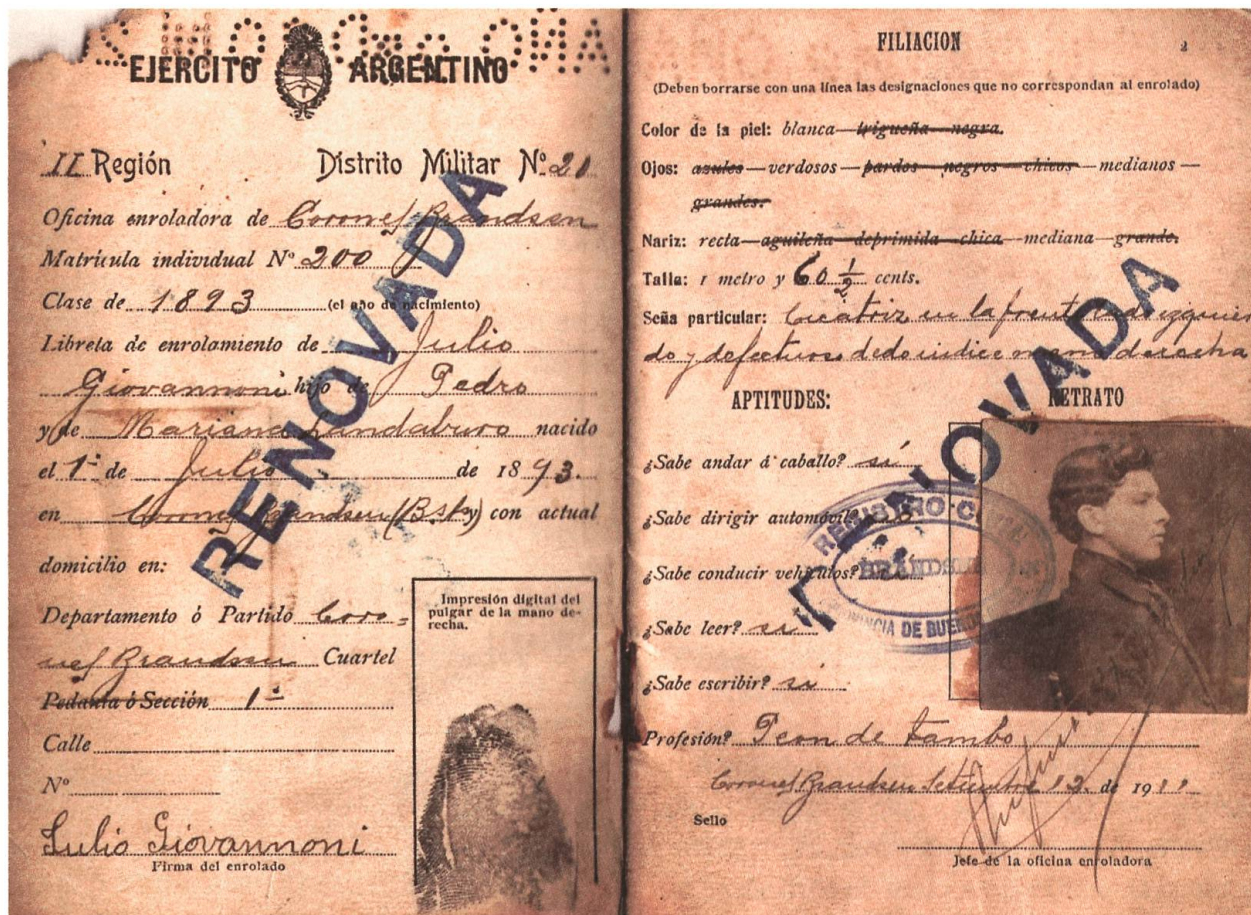 EJERCITO ARGENTINO
II Región Distrito Militar Nº 21
Oficina enroladora de Coronel Brandsen
Matrícula individual Nº 200
Clase de 1893 (el año de nacimiento)
Libreta de enrolamiento de Julio
Giovannoni hijo de Pedro
y de Mariana Landaburo nacido
el 1º de Julio de 1893.
en Coronel Brandsen (Bs. As) con actual
domicilio en:
Departamento ó Partido Coro-
nel Brandsen Cuartel
Pedanía ó Sección 1º
Calle
Nº
Julio Giovannoni
Firma del enrolado
Impresión digital del
pulgar de la mano de-
recha.
RENOVADA
FILIACION
2
(Deben borrarse con una línea las designaciones que no correspondan al enrolado)
Color de la piel: blanca—trigueña—negra.
Ojos: azules — verdosos — pardos — negros — chicos — medianos —
grandes.
Nariz: recta—aguileña—deprimida—chica—mediana—grande.
Talla: 1 metro y 60 ½ cents.
Seña particular: Cicatriz en la frente lado izquier
do y defectuoso dedo indice mano derecha
APTITUDES:
RETRATO
¿Sabe andar á caballo? si
¿Sabe dirigir automóvil?
¿Sabe conducir vehículos?
¿Sabe leer? si
¿Sabe escribir? si
Profesión? Peon de tambo
Coronel Brandsen Setiembre 12 de 1911
Sello
Jefe de la oficina enroladora
REGISTRO CIVIL
BRANDSEN
PROVINCIA DE BUENOS
RENOVADA